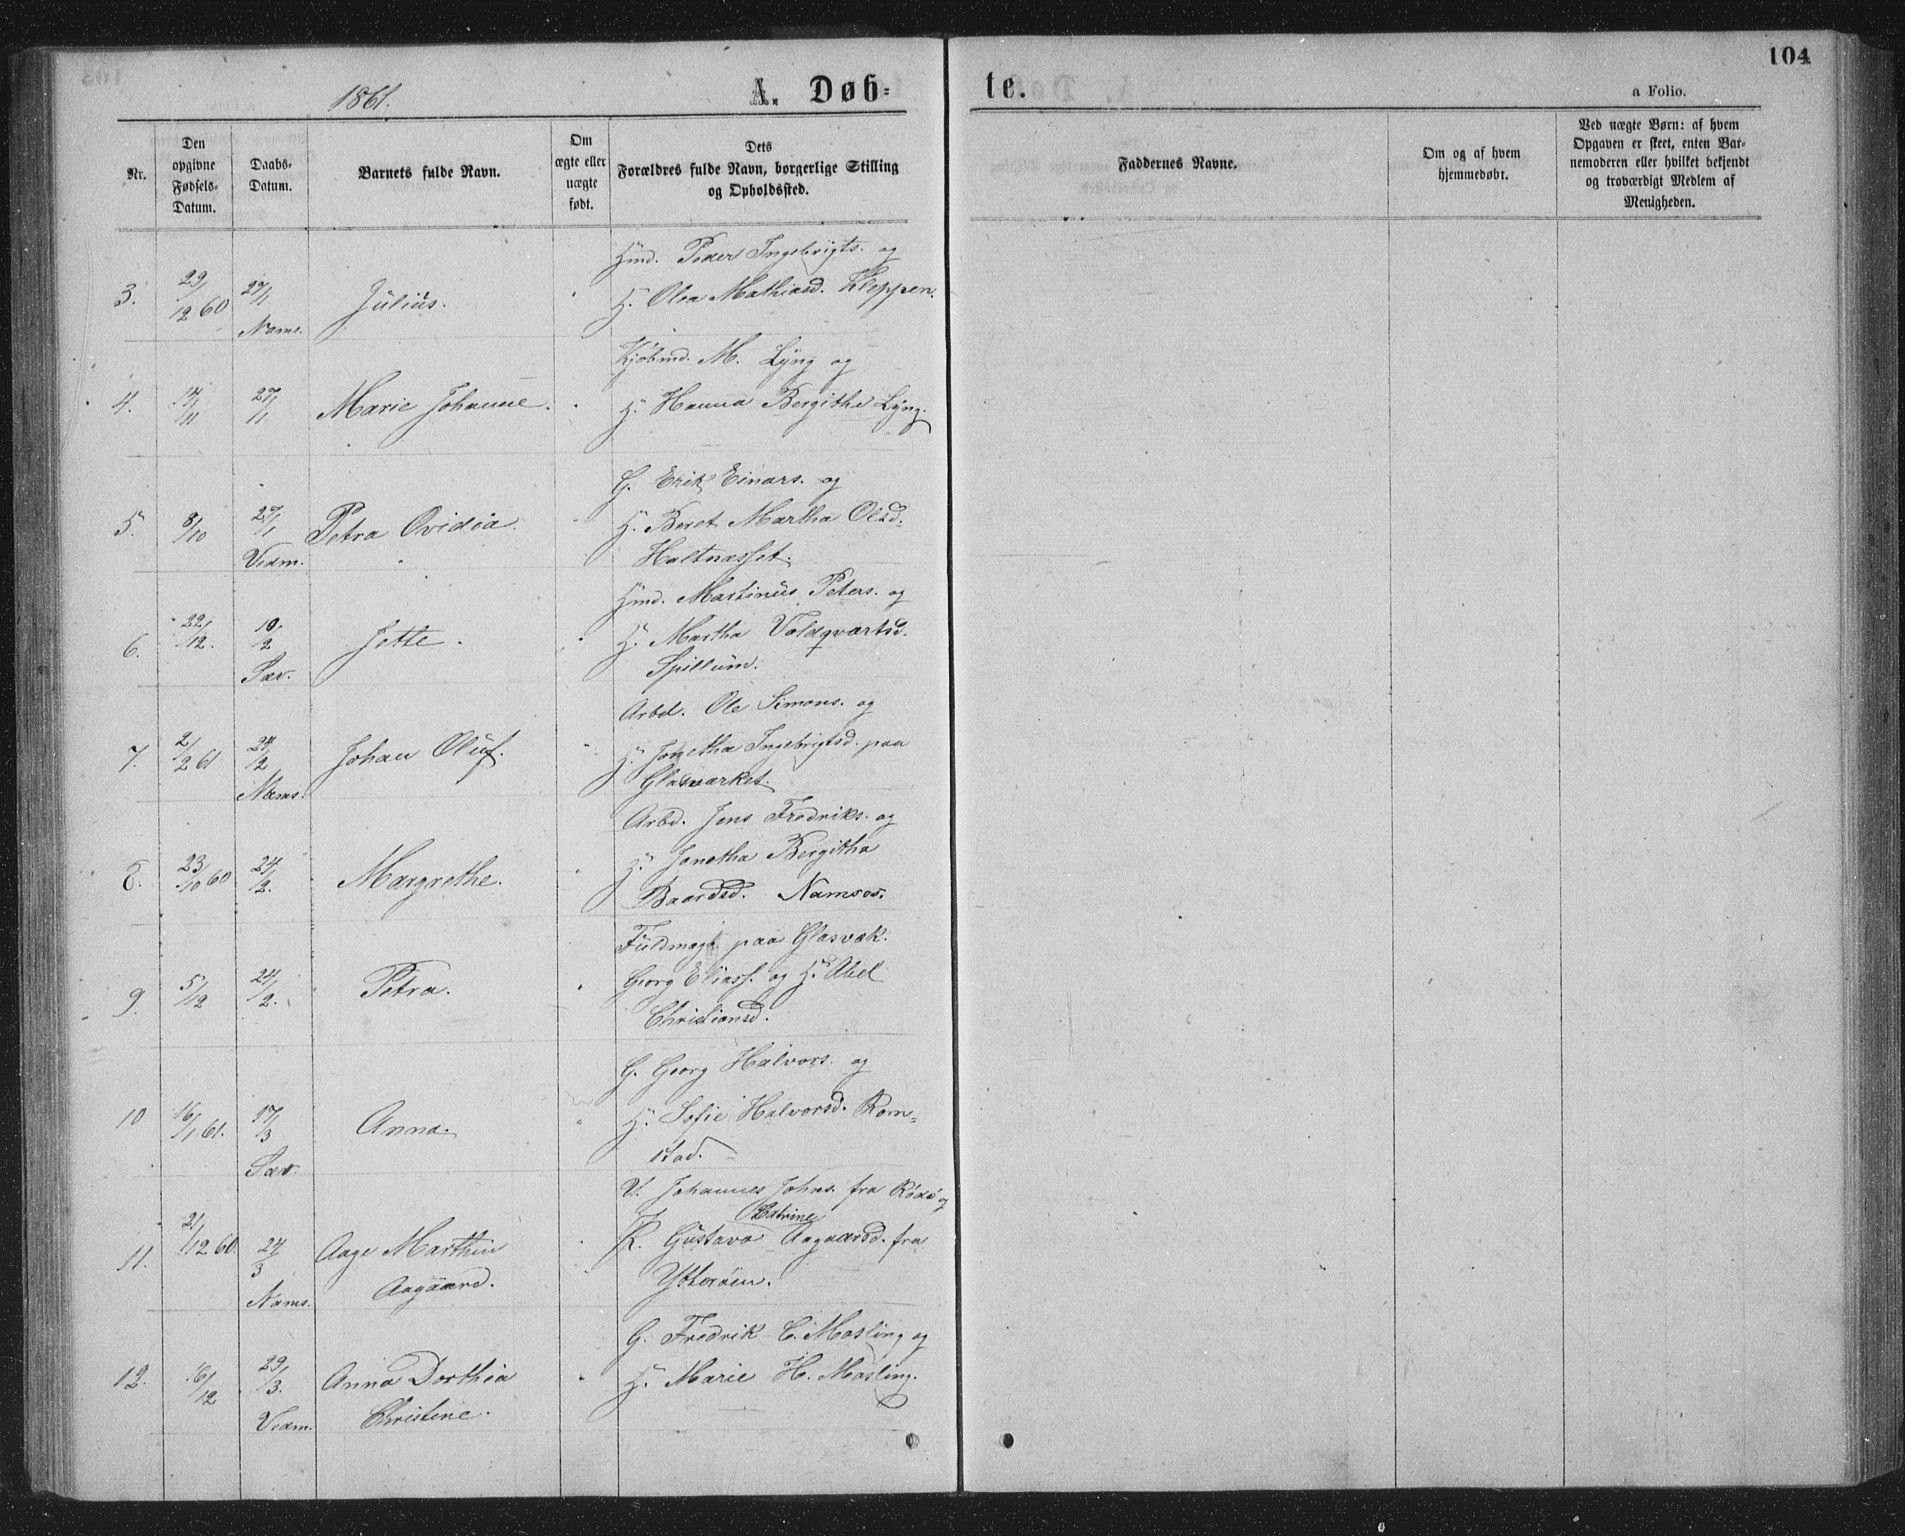 104
1861.
A. Døb-
te.
a Folio.
Nr.
Den opgivne Fødsels-Datum.
Daabs-Datum.
Barnets fulde Navn.
Om ægte eller uægte født.
Dets Forældres fulde Navn, borgerlige Stilling og Opholdssted.
Faddernes Navne.
Om og af hvem hjemmedøbt.
Ved uægte Børn: af hvem Opgaven er skeet, enten Barnemoderen eller hvilket bekjendt og troværdigt Medlem af Menigheden.
Hmd. Peder Ingebrigts. og
3. 29/12 60 27/1 Julius. H. Olea Mathiasd. Kleppen.
Nams.
Kjøbmd. M. Lyng og
4. 14/11 27/1 Marie Johanne. H. Hanna Bergithe Lyng.
G. Erik Einars. og
5. 8/10 27/1 Petra Ovidia. H. Beret Martha Olsd.
Vedm. Haltnæsset.
Hmd. Mastinus Peters. og
6. 22/12. 10/2 Jette. H. Martha Voldqvartsd.
Sæv. Spillum.
Arbd. Ole Simons. og
7. 2/2 61 24/2 Johan Oluf. H. Jonetha Ingebrigtsd. paa
Nams. Glasværket.
Arbd. Jens Fredriks. og
8. 23/10 60 24/2. Margrethe. H. Jonetha Bergitha
Baardsd. Namsos.
Fuldmægt. paa Glasvæk.
9. 5/12 24/2. Petra. Georg Eliass. og H. Abel
Christiansd.
G. Georg Halvors. og
10 16/1 61. 17/3 Anna. H. Sofie Halvorsd. Rom-
Sæv. stad.
U. Johannes Johns. fra Rödö og
Catrine
11. 21/12 60. 24/3 Aage Marthin P. Gustava Aagaardsd. fra
Nams. Aagaard. Ytterøen.
G. Fredrik C. Mosling og
12. 16/12 29/3. Anna Dorthea H. Marie H. Mosling.
Vedm. Christine.